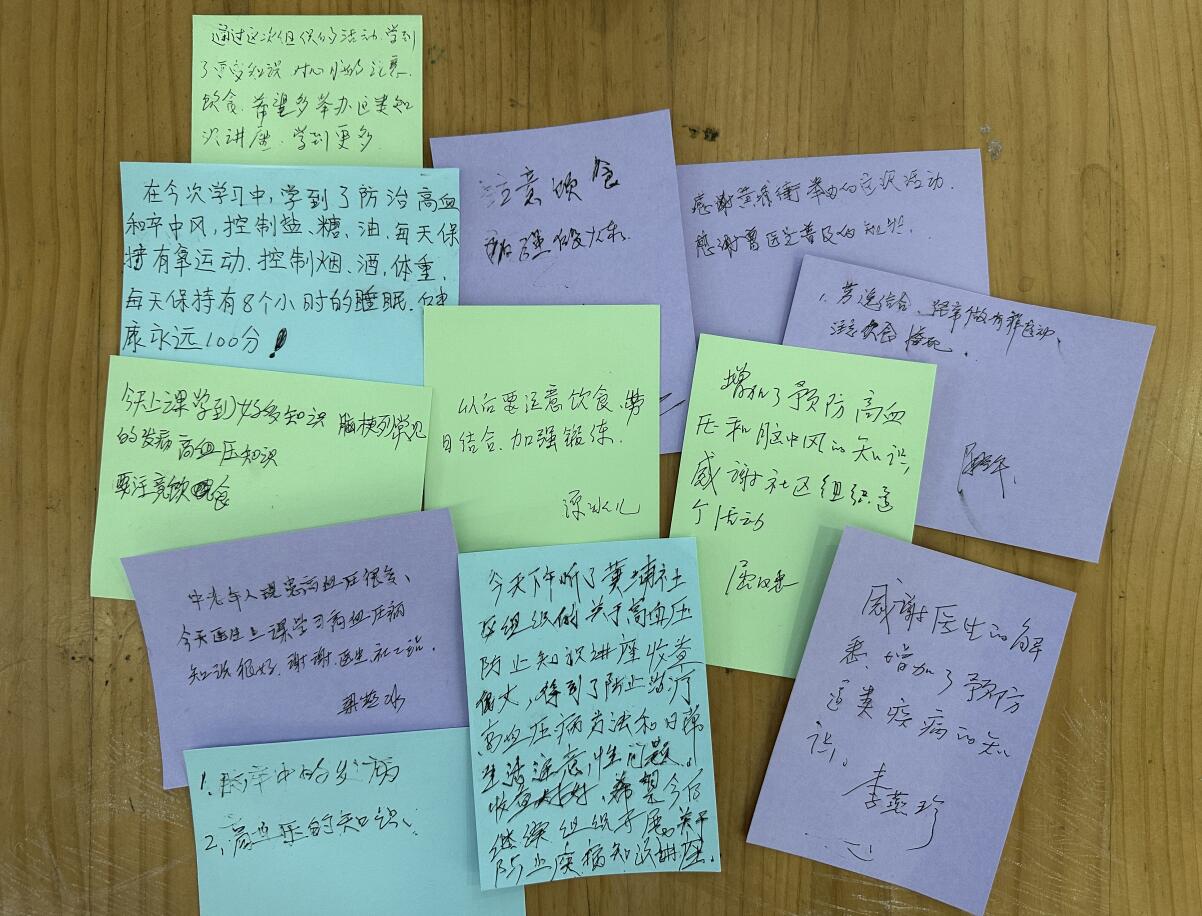 通过这次组织的活动.学到
了 知识
饮食.希望多举办这类知
识讲座.学到更多
在今次学习中,学到了防治高血
和卒中风,控制盐、糖、油、每天保
持有氧运动.控制烟、酒,体重,
每天保持有8个小时的睡眠.健
康永远100分!
注意饮食
感谢 举办的 活动.
感谢曾医生普及的
劳逸结合、 做有氧运动、
注意饮食搭配.
今天上课学到好多知识 脑梗 常见
的发病高血压知识
要注意饮食
以后要注意饮食、劳
日结合.加强锻练.
增加了预防高血
压和脑中风的知识,
感谢社区组织这
个活动
中老年人 患高血压很多、
今天医生上课学习高血压病
知识很好.谢谢医生.社工
今天下午听了黄埔社
区组织的关于高血压
防止知识讲座收查
偏大,得到了防止治疗
高血压病方法和日常
生活注意性问题。
收查 好,希望今后
继续组织开展 关于
防止疾病知识讲座.
感谢医生的解
惑,增加了预防
这类疾病的知
识。
李燕珍
1.脑卒中的发病
2、高血压的知识、